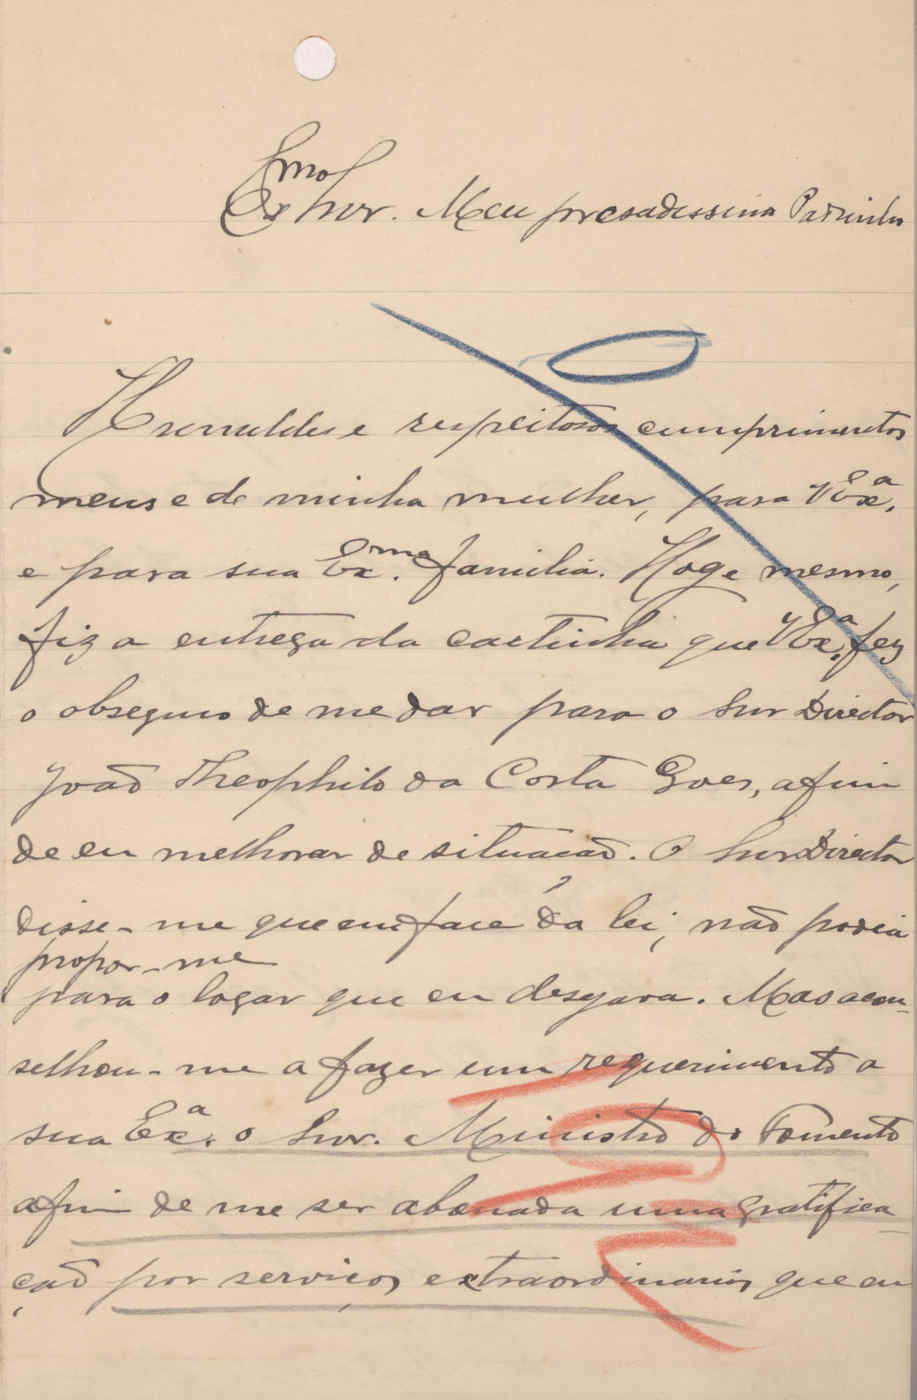 Exmo Snr. Meu presadissimo Padrinho
Humildes e respeitosos cumprimentos
meus e de minha mulher, para V Exª,
e para sua Ex.ma familia. Hoge mesmo,
fiz a entrega da cartinha que V Exª. fez
o obsequio de me dar para o Snr Director
João Theophilo da Costa Goes, afim
de eu melhorar de situacão. O Snr Director
disse-me que em face da lei, não podia
propor-me
para o logar que eu desejava. Mas acon-
selhou-me a fazer um requerimento a
sua Exª. o Snr. Ministro do Fomento
afim de me ser abonada uma gratifica-
ção por serviços extraordinarios que eu